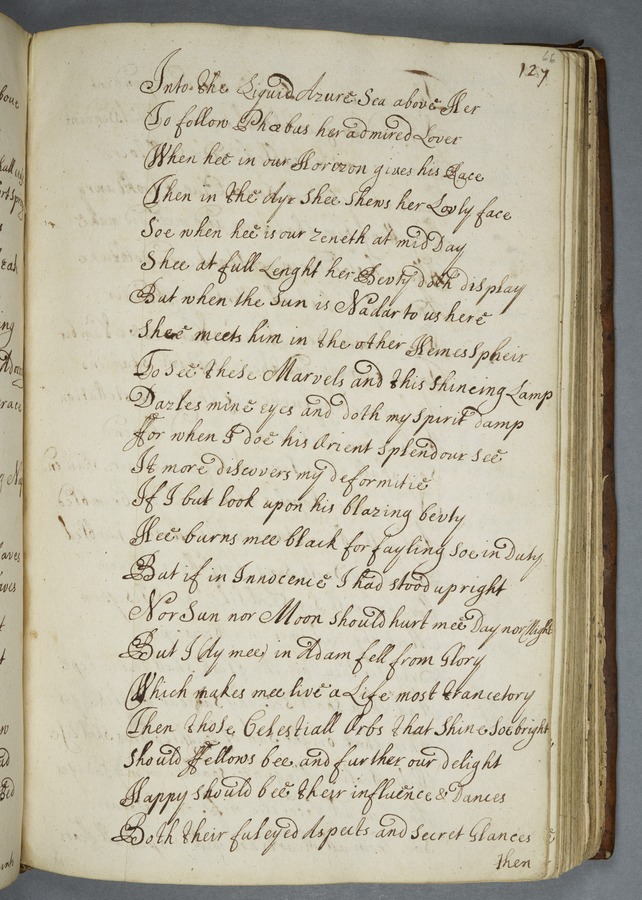 66
127
Into the Liquid Azure Sea above Her
To follow Phœbus her admired Lover
When hee in our Horizon gives his Race
Then in the Ayr Shee Shews her Lovly face
Soe when hee is our Zeneth at mid Day
Shee at full Lenght her Bevty doth display
But when the Sun is Nadar to us here
Shee meets him in the other Hemes Spheir
To See these Marvels and this Shineing Lamp
Dazles mine eyes and doth my Spirit damp
ffor when I doe his Orient Splendour See
It more discovers my deformitie
If I but look upon his blazing bevty
Hee burns mee black for fayling Soe in Duty
But if in Innocence I had stood upright
Nor Sun nor Moon should hurt mee Day nor Night
But I (Ay mee) in Adam fell from Glory
Which makes mee live a Life most trancetory
Then those Celestiall Orbs that Shine Soe bright
Should ffellows bee and further our delight
Happy should bee their influence & Dances
Both their fuleyed Aspects and Secret Glances
then